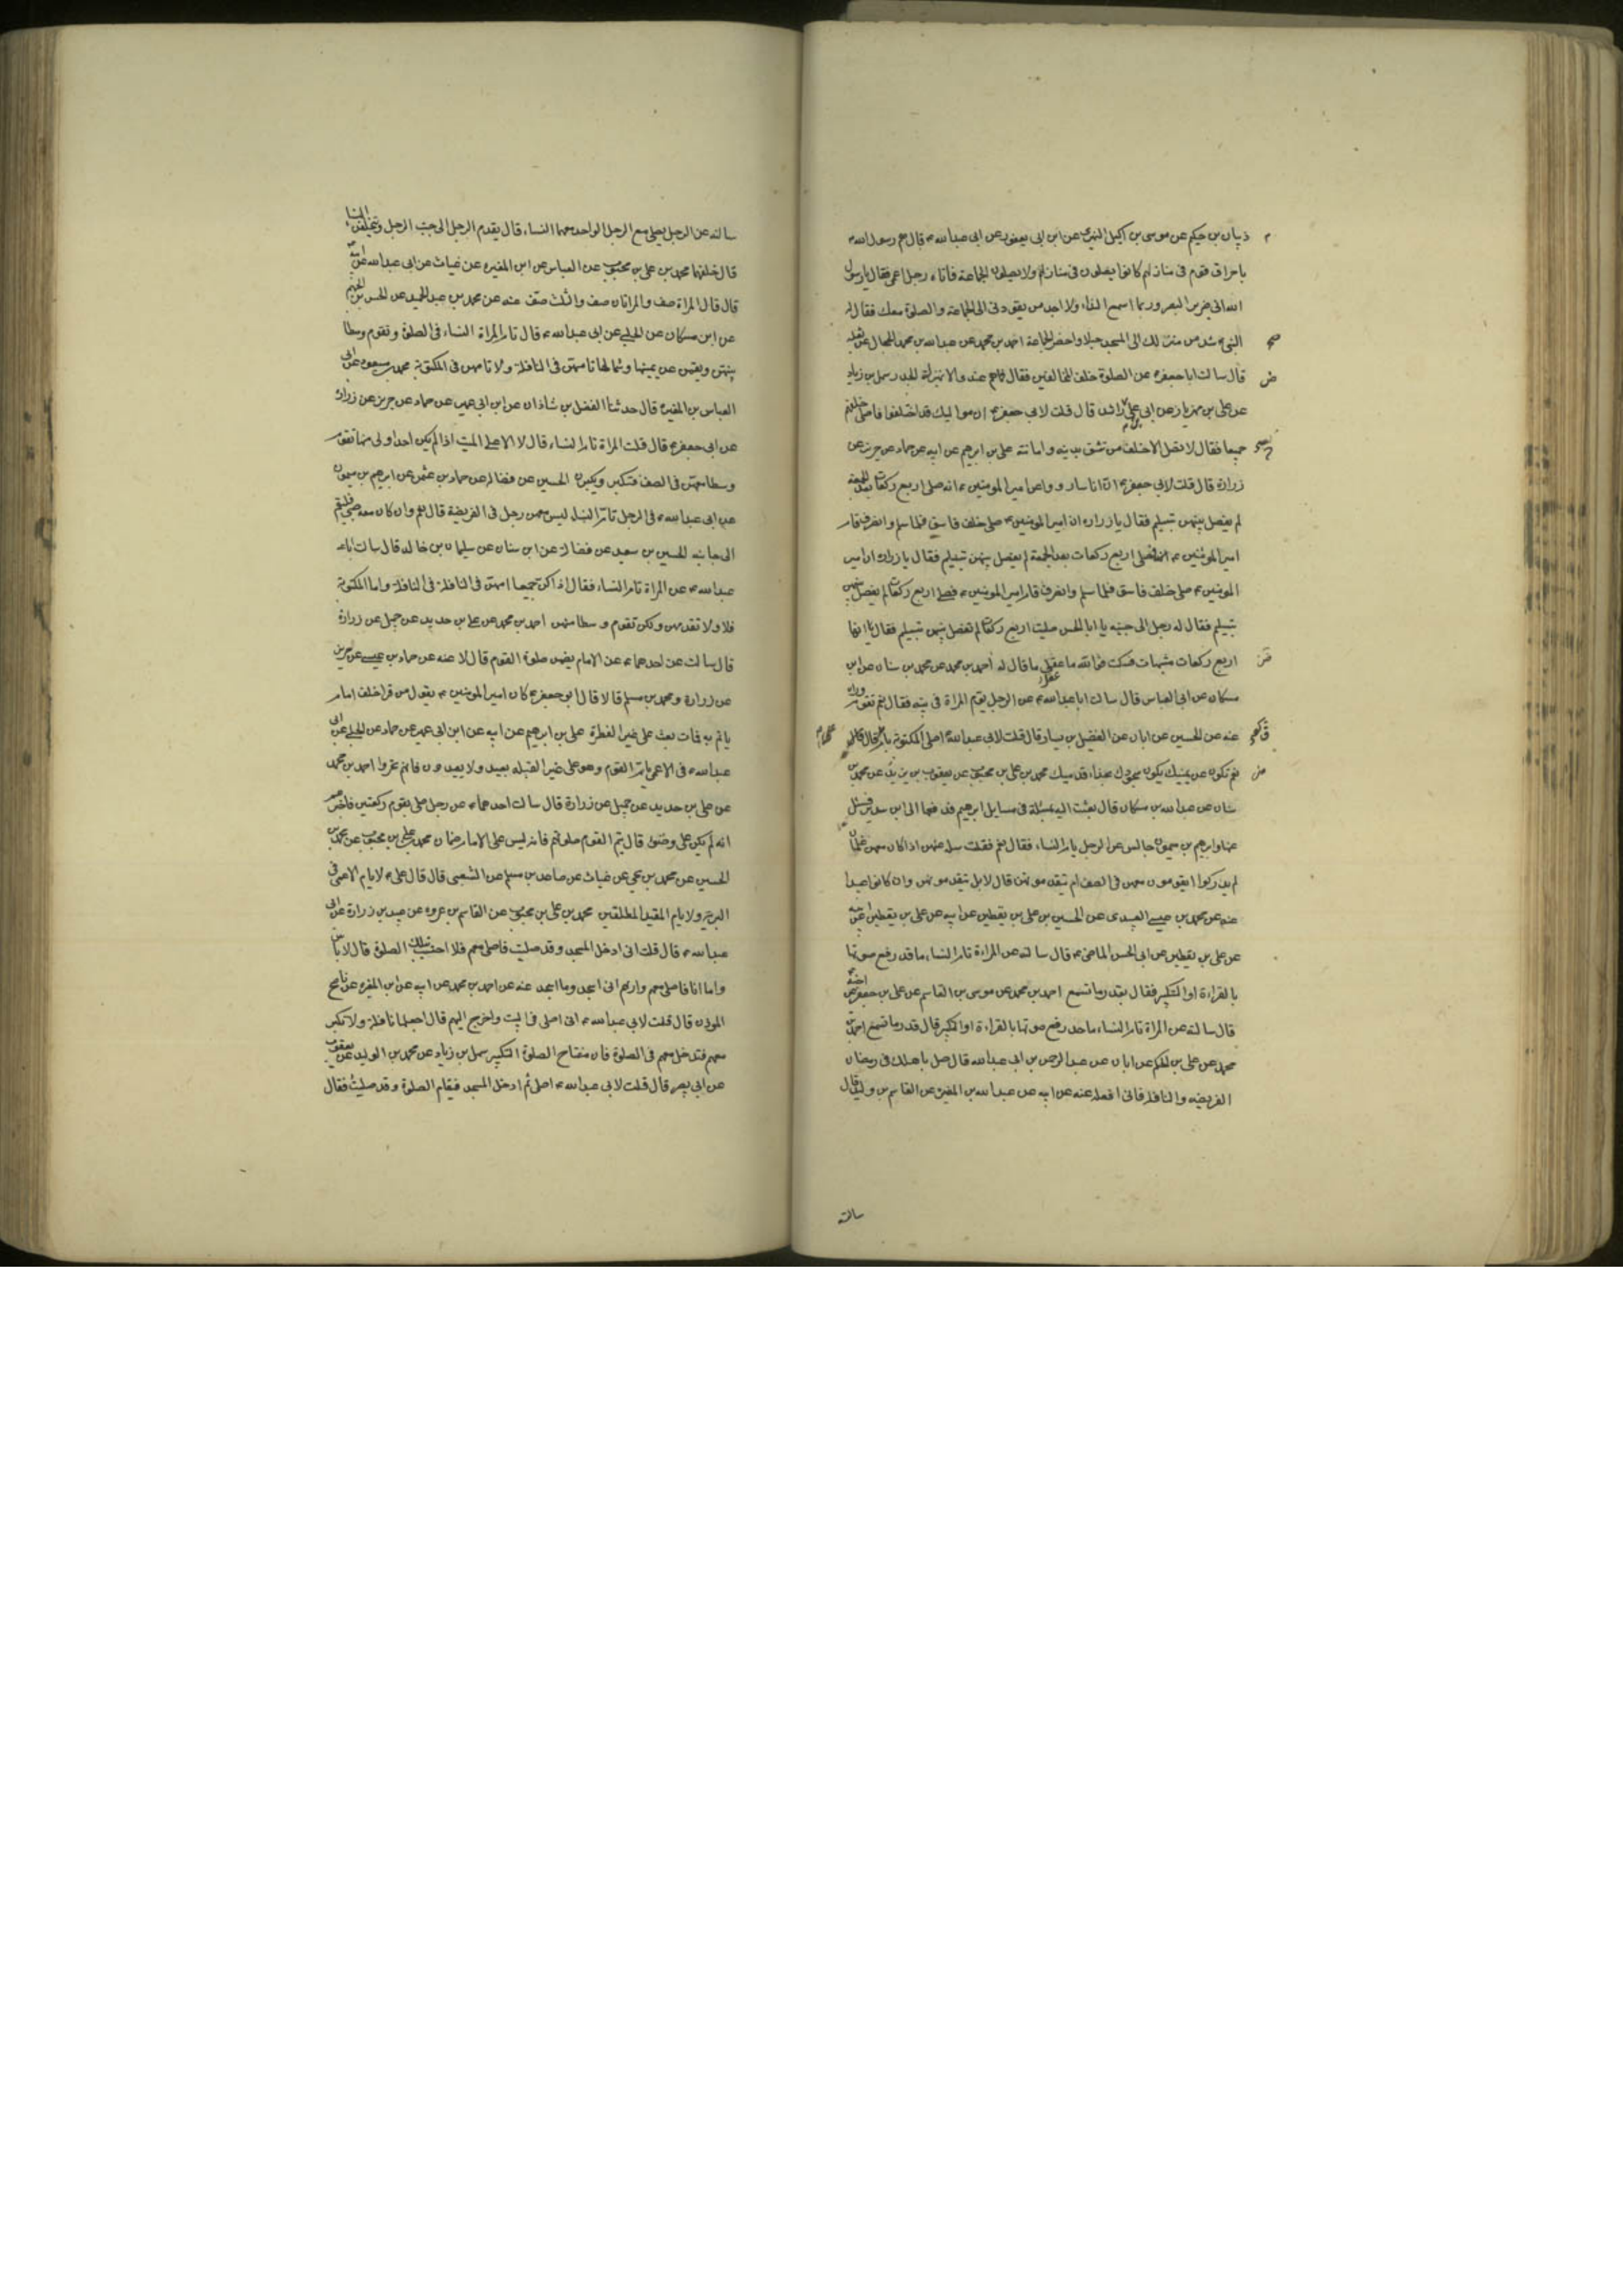 ذبيان بن حكيم عن موسى بن اكيل النميرى عن ابن ابى يعفور عن ابى عبدالله ع قال هم رسول الله ص
باحراق قوم فى منازلهم كانوا يصلون فى منازلهم ولا يصلون الجماعة فاتاه رجل اعمى فقال يا رسول
الله انى ضرير البصر وربما اسمع النداء ولا اجد من يقودنى الى الجماعة والصلوة معك فقال له
النبى ص شد من منزلك الى المسجد حبلا واحضر الجماعة احمد بن محمد عن عبدالله بن محمد الحجال عن ثعلبه
قال سالت ابا جعفر ع عن الصلوة خلف المخالفين فقال ما هم عندى الا بمنزلة الجدر سهل بن زياد
عن على بن مهزيار عن ابى على بن راشد قال قلت لابى جعفر ع ان مواليك قد اختلفوا فاصلى خلفهم
جميعا فقال لا تصل الا خلف من تثق بدينه وامانته على بن ابرهيم عن ابيه عن حماد عن حريز عن
زرارة قال قلت لابى جعفر ع ان اناسا رووا عن امير المومنين ع انه صلى اربع ركعات بعد الجمعة
لم يفصل بينهن بتسليم فقال يا زرارة ان امير المومنين ع صلى خلف فاسق فلما سلم وانصرف قام
امير المومنين ع فصلى اربع ركعات بعد الجمعة لم يفصل بينهن بتسليم فقال يا زراره ان امير
المومنين ع صلى خلف فاسق فلما سلم وانصرف قام امير المومنين ع فصلى اربع ركعات لم يفصل بينهن
بتسليم فقال له رجل الى جنبه يا ابا الحسن صليت اربع ركعات لم تفصل بينهن بتسليم فقال انها
اربع ركعات مشبهات فسكت فوالله ما عقل ما قال له احمد بن محمد عن محمد بن سنان عن ابن
مسكان عن ابى العباس قال سالت ابا عبدالله ع عن الرجل يؤم المراة فى بيته فقال نعم تقوم وراءه
عنه عن الحسين عن ابان عن الفضيل بن يسار قال قلت لابى عبدالله ع اصلى المكتوبة بام على قال
نعم تكون عن يمينك يكون سجودها بحذاء قدميك محمد بن على بن محبوب عن يعقوب بن يزيد عن محمد بن
سنان عن عبدالله بن مسكان قال بعثت اليه بمسئلة فى مسايل ابرهيم فدفعها الى ابن سدير فسئل
عنها وابرهيم بن ميمون جالس عن الرجل يام النساء فقال نعم فقلت سله عنهن اذا كان معهن غلمان
لم يدركوا ايقومون معهن فى الصف ام يتقدمونهن قال لا بل يتقدمونهن وان كانوا عبيدا
عنه عن محمد بن عيسى العبيدى عن الحسين بن على بن يقطين عن ابيه على بن يقطين
عن على بن يقطين عن ابى الحسن الماضى ع قال سالته عن المراءة تام النساء ما قدر رفع صوتها
بالقراءة او التكبير فقال بقدر ما تسمع احمد بن محمد عن موسى بن القاسم عن على بن جعفر عن اخيه
قال سالته عن المراة تام النساء ما حد رفع صوتها بالقراءة او التكبير قال قدر ما تسمع احمد بن
محمد عن على بن الحكم عن ابان عن عبد الرحمن بن ابى عبدالله قال صل باهلك فى رمضان
الفريضه والنافلة فانى افعله عنه عن ابيه عن عبدالله بن المغيرة عن القاسم بن وليد قال
سالته
سالته عن الرجل يصلى مع الرجل الواحد معهما النساء قال يقدم الرجل الى جنب الرجل ويتخلفن النساء
قال خلفهما محمد بن على بن محبوب عن العباس عن ابن المغيره عن غياث عن ابى عبدالله عن ابيه
قال قال المراة صف والمراتان صف والثلث صف عنه عن محمد بن عبد الحميد عن الحسن بن الجهم
عن ابن مسكان عن الحلبى عن ابى عبدالله ع قال تام المراة النساء فى الصلوة وتقوم وسطا
بينهن ويقمن عن يمينها وشمالها تامهن فى النافلة ولا تامهن فى المكتوبة محمد بن مسعود عن ابى
العباس بن المغيره قال حدثنا الفضل بن شاذان عن ابن ابى عمير عن حماد عن حريز عن زراره
عن ابى جعفر ع قال قلت المراة تام النساء قال لا الا على الميت اذا لم يكن احد اولى منها تقوم
وسطا معهن فى الصف فتكبر ويكبرن الحسين عن فضاله عن حماد بن عثمن عن ابرهيم بن ميمون
عن ابى عبدالله ع فى الرجل تام النساء ليس معهن رجل فى الفريضة قال نعم وان كان معه صبى فليقم
الى جانبه الحسين بن سعيد عن فضالة عن ابن سنان عن سليمان بن خالد قال سالت ابا
عبدالله ع عن المراة تام النساء فقال اذا كن جميعا امتهن فى النافلة فى النافلة واما المكتوبة
فلا ولا تقدمهن ولكن تقوم وسطا منهن احمد بن محمد عن على بن حديد عن جميل عن زرارة
قال سالت عن احدهما ع عن الامام يضمن صلوة القوم قال لا عنه عن حماد بن عيسى عن حريز
عن زرارة ومحمد بن مسلم قالا قال ابو جعفر ع كان امير المومنين ع يقول من قرا خلف امام
ياتم به فمات بعث على غير الفطرة على بن ابرهيم عن ابيه عن ابن ابى عمير عن حماد عن الحلبى عن ابى
عبدالله ع فى الاعمى يام القوم وهو على غير القبله يعيد ولا يعيدون فانهم تحروا احمد بن محمد
عن على بن حديد عن جميل عن زرارة قال سالت احدهما ع عن رجل صلى بقوم ركعتين فاخبرهم
انه لم يكن على وضوء قال يتم القوم صلوتهم فانه ليس على الامام ضمان محمد بن على بن محبوب عن محمد بن
الحسين عن محمد بن يحيى عن غياث عن صاعد بن مسلم عن الشعبى قال قال على ع لا يام الاعمى فى
البرية ولا يام المقيد المطلقين محمد بن على بن محبوب عن القاسم بن عروه عن عبيد بن زرارة عن ابى
عبدالله ع قال قلت انى ادخل المسجد وقد صليت فاصلى معهم فلا احتسب بتلك الصلوة قال لا باس
واما انا فاصلى معهم واريهم انى اسجد وما اسجد عنه عن احمد بن محمد عن ابيه عن ابن المغيره عن ناصح
الموذن قال قلت لابى عبدالله ع انى اصلى فى البيت واخرج اليهم قال اجعلها نافلة ولا تكبر
معهم فتدخل معهم فى الصلوة فان مفتاح الصلوة التكبير سهل بن زياد عن محمد بن الوليد عن يعقوب
عن ابى بصير قال قلت لابى عبدالله ع اصلى ثم ادخل المسجد فيقام الصلوة وقد صليت فقال